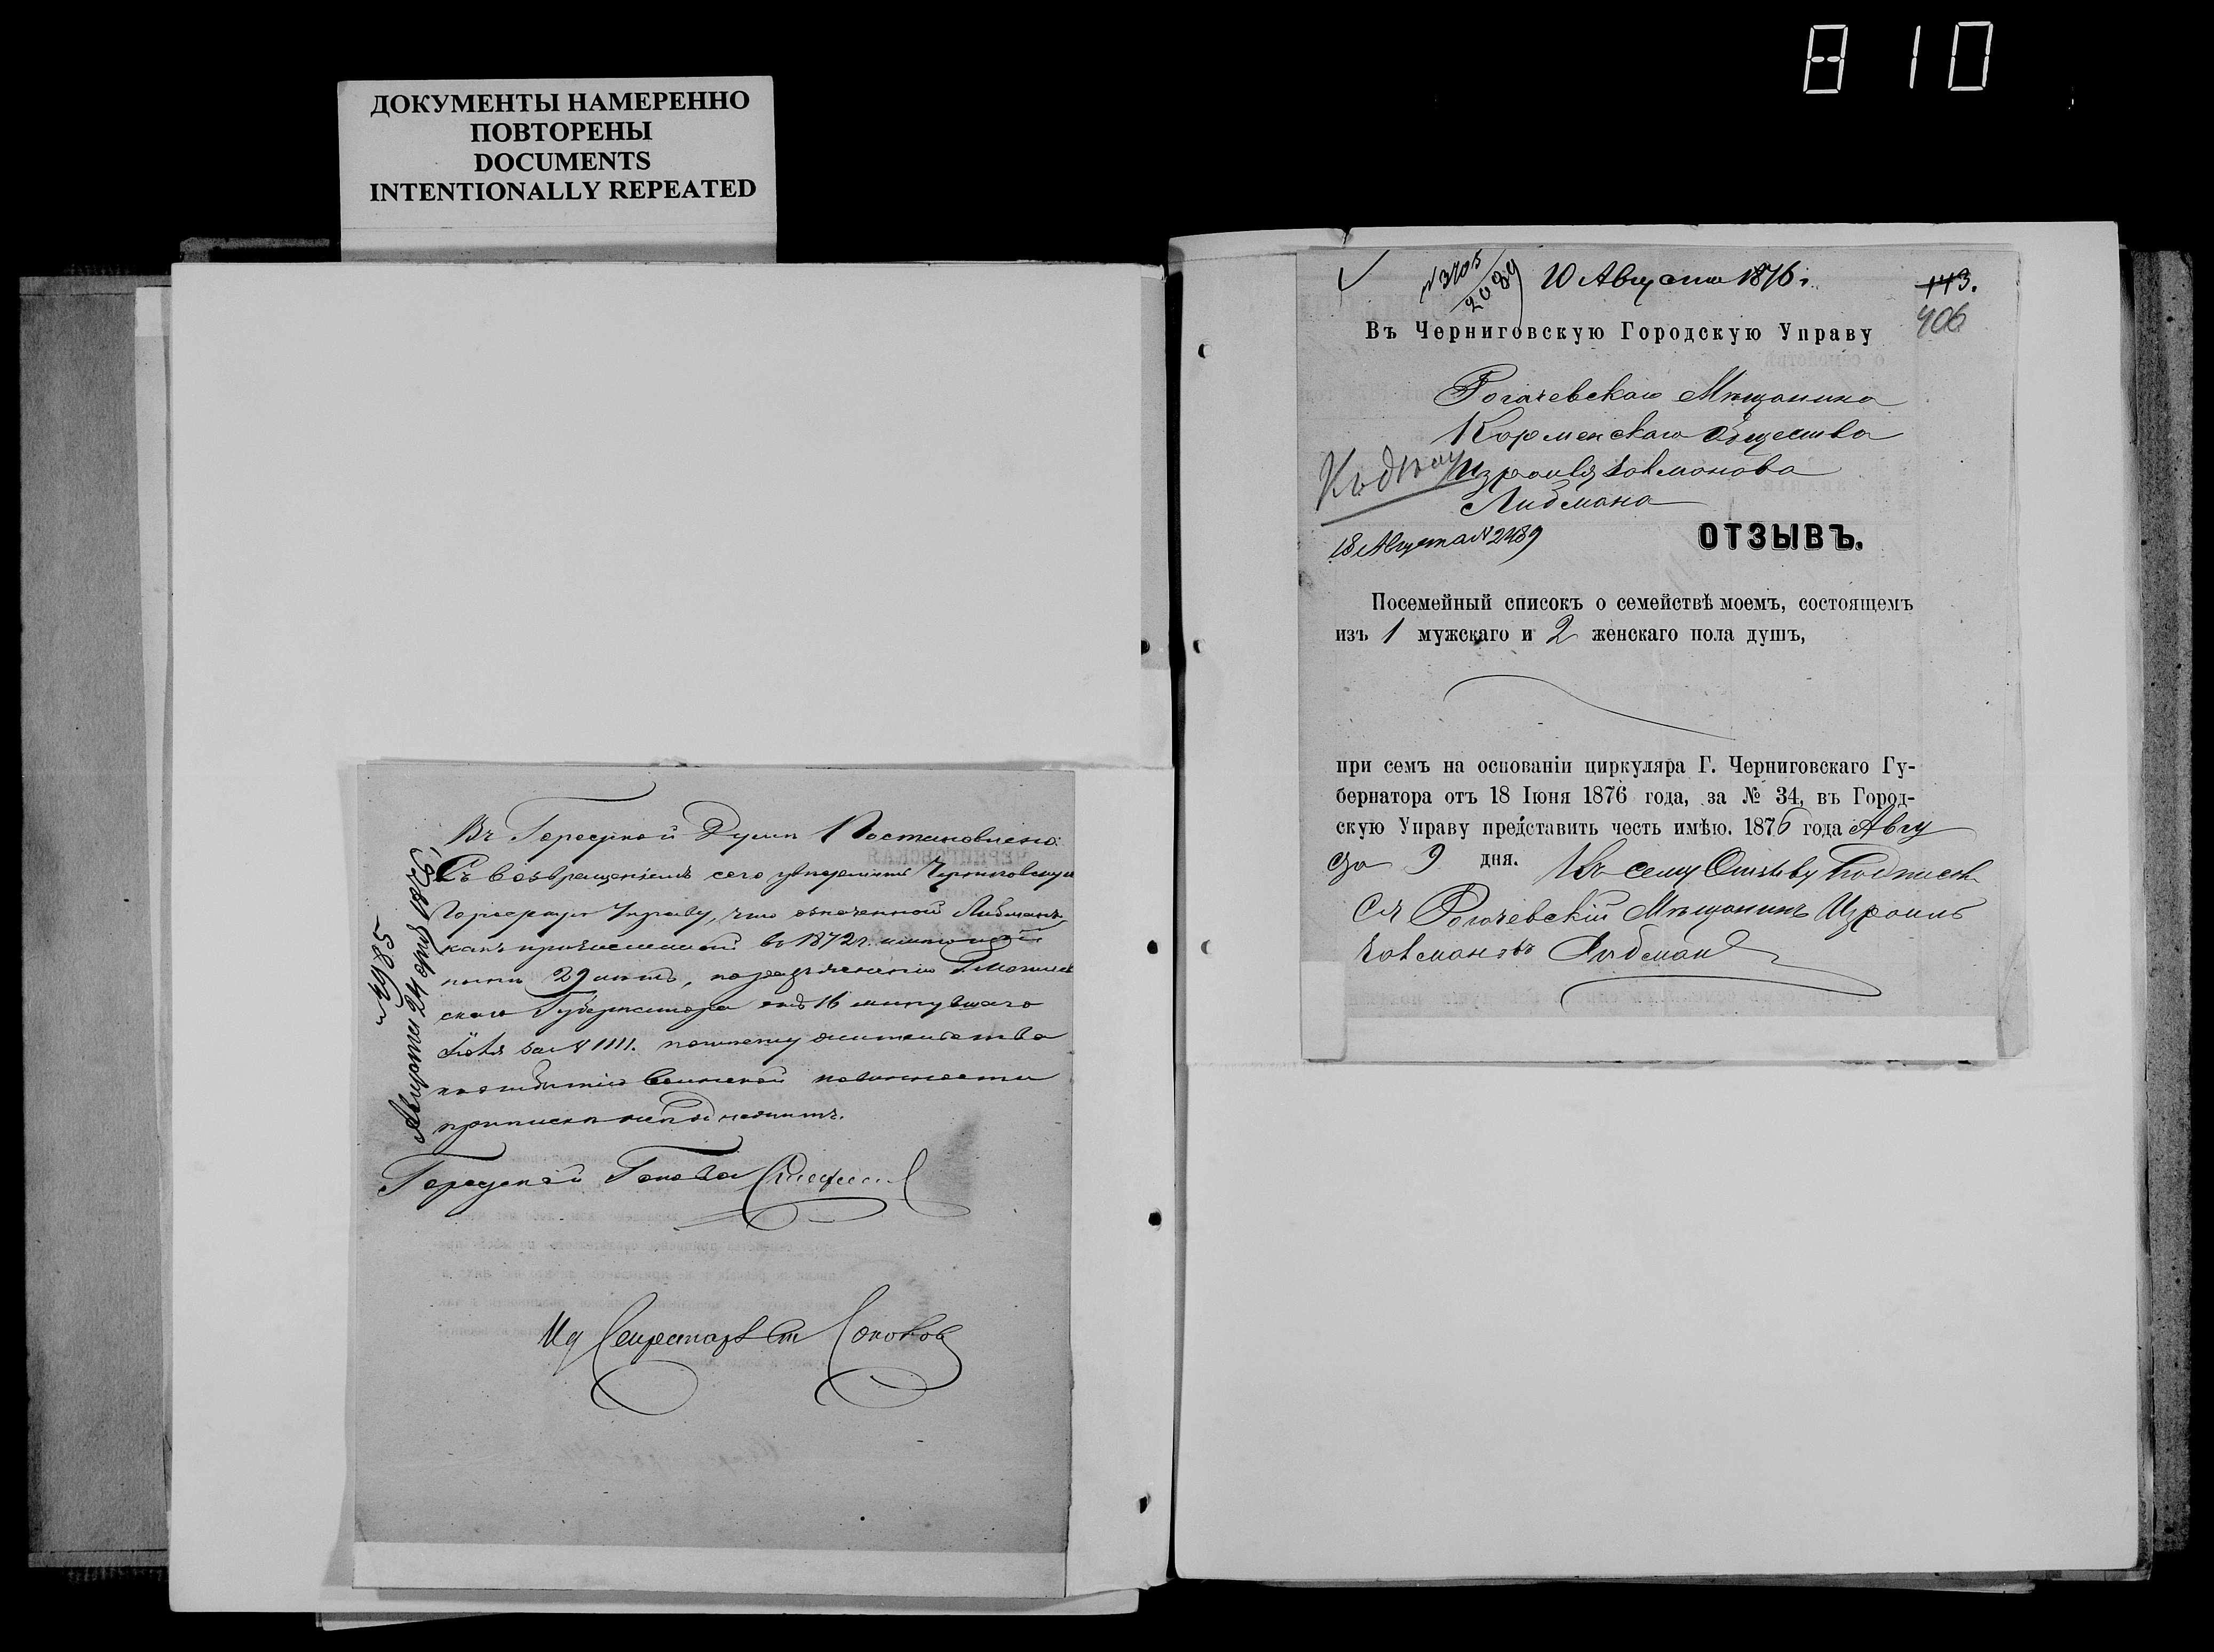 810
ДОКУМЕНТЫ НАМЕРЕННО
ПОВТОРЕНЫ
DOCUMENTS
INTENTIONALLY REPEATED
Въ Городской Думѣ Постановлено:
Съ возвращеніемъ сего увѣдомить Черниговскую
Городскую Управу, что означенной Либманъ,
какъ причисленный въ 1872 г.
29 лѣтъ, по Г. Могилев
скаго Губернатора отъ 16 минувшаго
Іюля за № 1111.
воинской повинности
припискѣ не подлежитъ.
Городской Голова
Ид Секретаря Соколов
№ 1985
Августа 24 дня 1876 г.
№ 3705
2089
10 Августа 1876 г.
143.
406
Въ Черниговскую Городскую Управу
Рогачевскаго Мѣщанина
Корменскаго Общества
Израиля Залманова
Либмана
Къ дѣлу
18 Августа № 2489
ОТЗЫВЪ.
Посемейный списокъ о семействѣ моемъ, состоящемъ
изъ 1 мужскаго и 2 женскаго пола душъ,
при семъ на основаніи циркуляра Г. Черниговскаго Гу-
бернатора отъ 18 Іюня 1876 года, за № 34, въ Город-
скую Управу представить честь имѣю. 1876 года Авгу
ста 9 дня. Къ сему Отзыву подписал
ся Рогачевскій Мѣщанинъ Израиль
Залмановъ Либман